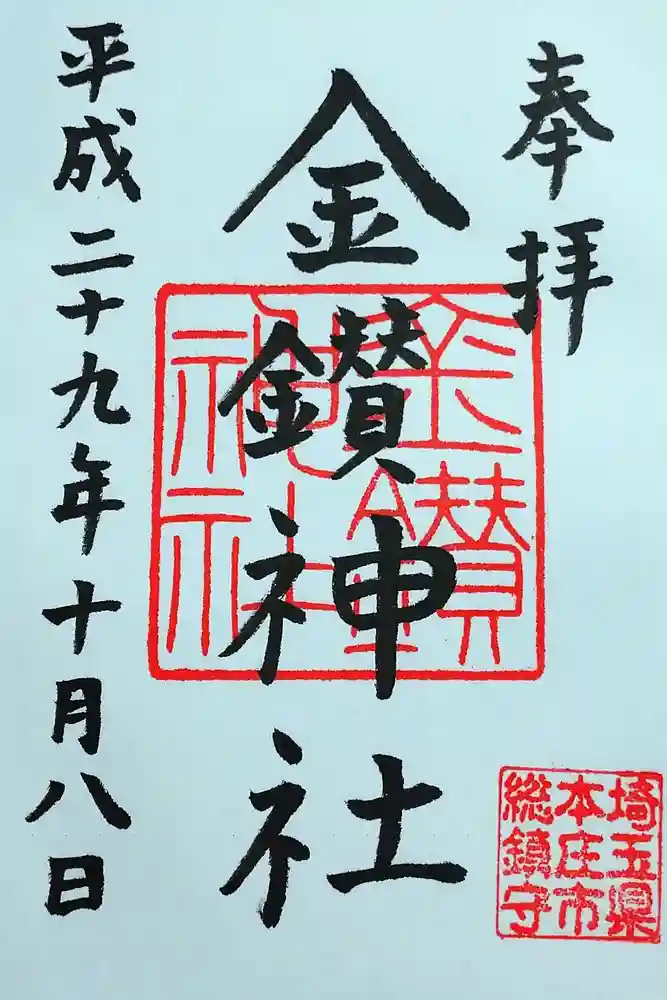 奉拝
金鑚神社
金鑚神社
埼玉県
本庄市
総鎮守
平成二十九年十月八日